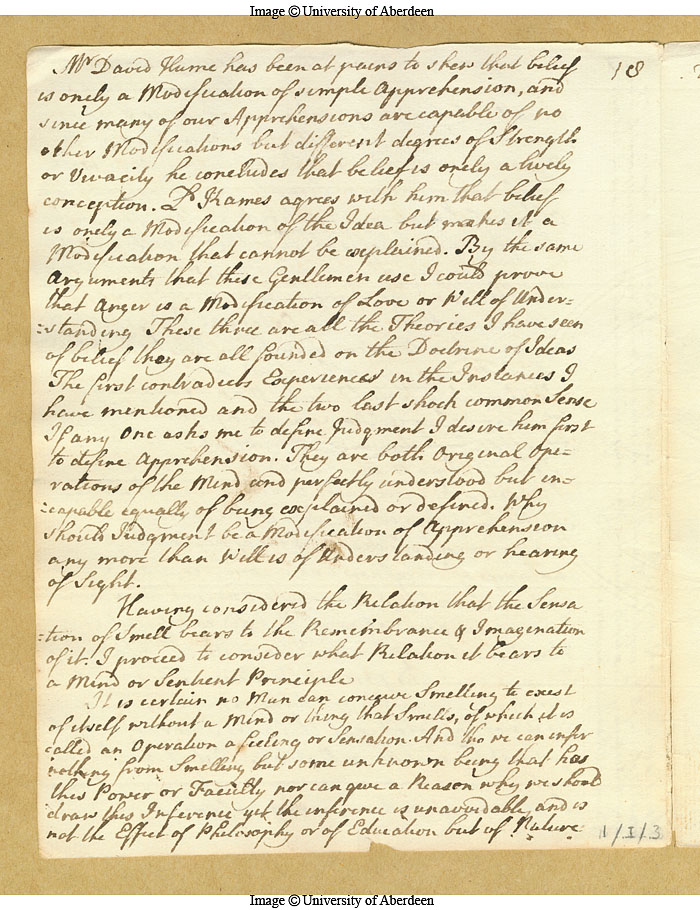 Image © University of Aberdeen
18
Mr David Hume has been at pains to shew that belief
is onely a Modification of simple Apprehension, and
since many of our Apprehensions are capable of no
other Modifications but different degrees of Strength
or Vivacity he concludes that belief is onely a lively
conception. Ld Kames agrees with him that belief
is onely a Modification of the Idea but makes it a
Modification that cannot be explained. By the same
Arguments that these Gentlemen use I could prove
that Anger is a Modification of Love or Will of Under-
-standing These three are all the Theories I have seen
of belief they are all founded on the Doctrine of Ideas
The first contradicts Experience in the Instances I
have mentioned and the two last shock common Sense
If any One asks me to define Judgment I desire him first
to define Apprehension. They are both Original Ope-
rations of the Mind and perfectly understood but in-
-capable equally of being explained or defined. Why
should Judgment be a Modification of Apprehension
any more than Will is of Understanding or hearing
of Sight.
Having considered the Relation that the Sensa
-tion of Smell bears to the Remembrance & Imagination
of it. I proceed to consider what Relation it bears to
a Mind or Sentient Principle
It is certain no Man can conceive Smelling to exist
of itself without a Mind or thing that Smells, of which it is
called an Operation a feeling or Sensation. And tho we can infer
nothing from Smelling but some unknown being that has
this Power or Faculty nor can give a Reason why we should
draw this Inference yet the inference is unavoidable, and is
not the Effect of Philosophy or of Education but of Nature.
1/I/3
Image © University of Aberdeen